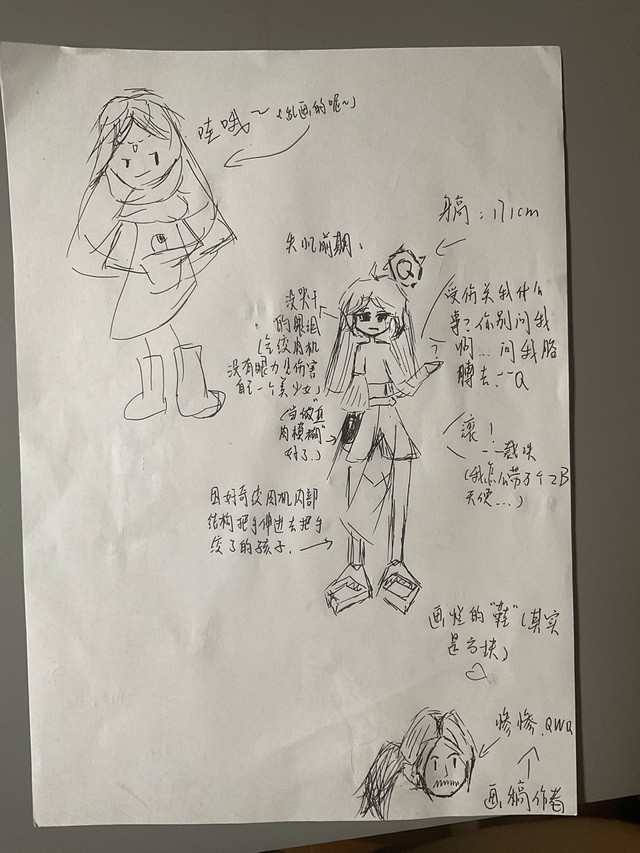 哇哦~(乱画的呢~)
身高:171cm
失忆前期:
Q
没哭干
的眼泪
(含绞肉机
没有眼力见伤害
自己一个美少女)
受伤关我什么
事?你别问我
啊...问我胳
膊去.--Q
(当做"血
肉模糊"
好了.)
滚!
(我怎么带了个2B
天使...)
因好奇绞肉机内部
结构把手伸进去把手
绞了的孩子.
画烂的"鞋"(其实
是方块)
惨惨.QWQ
画稿作者